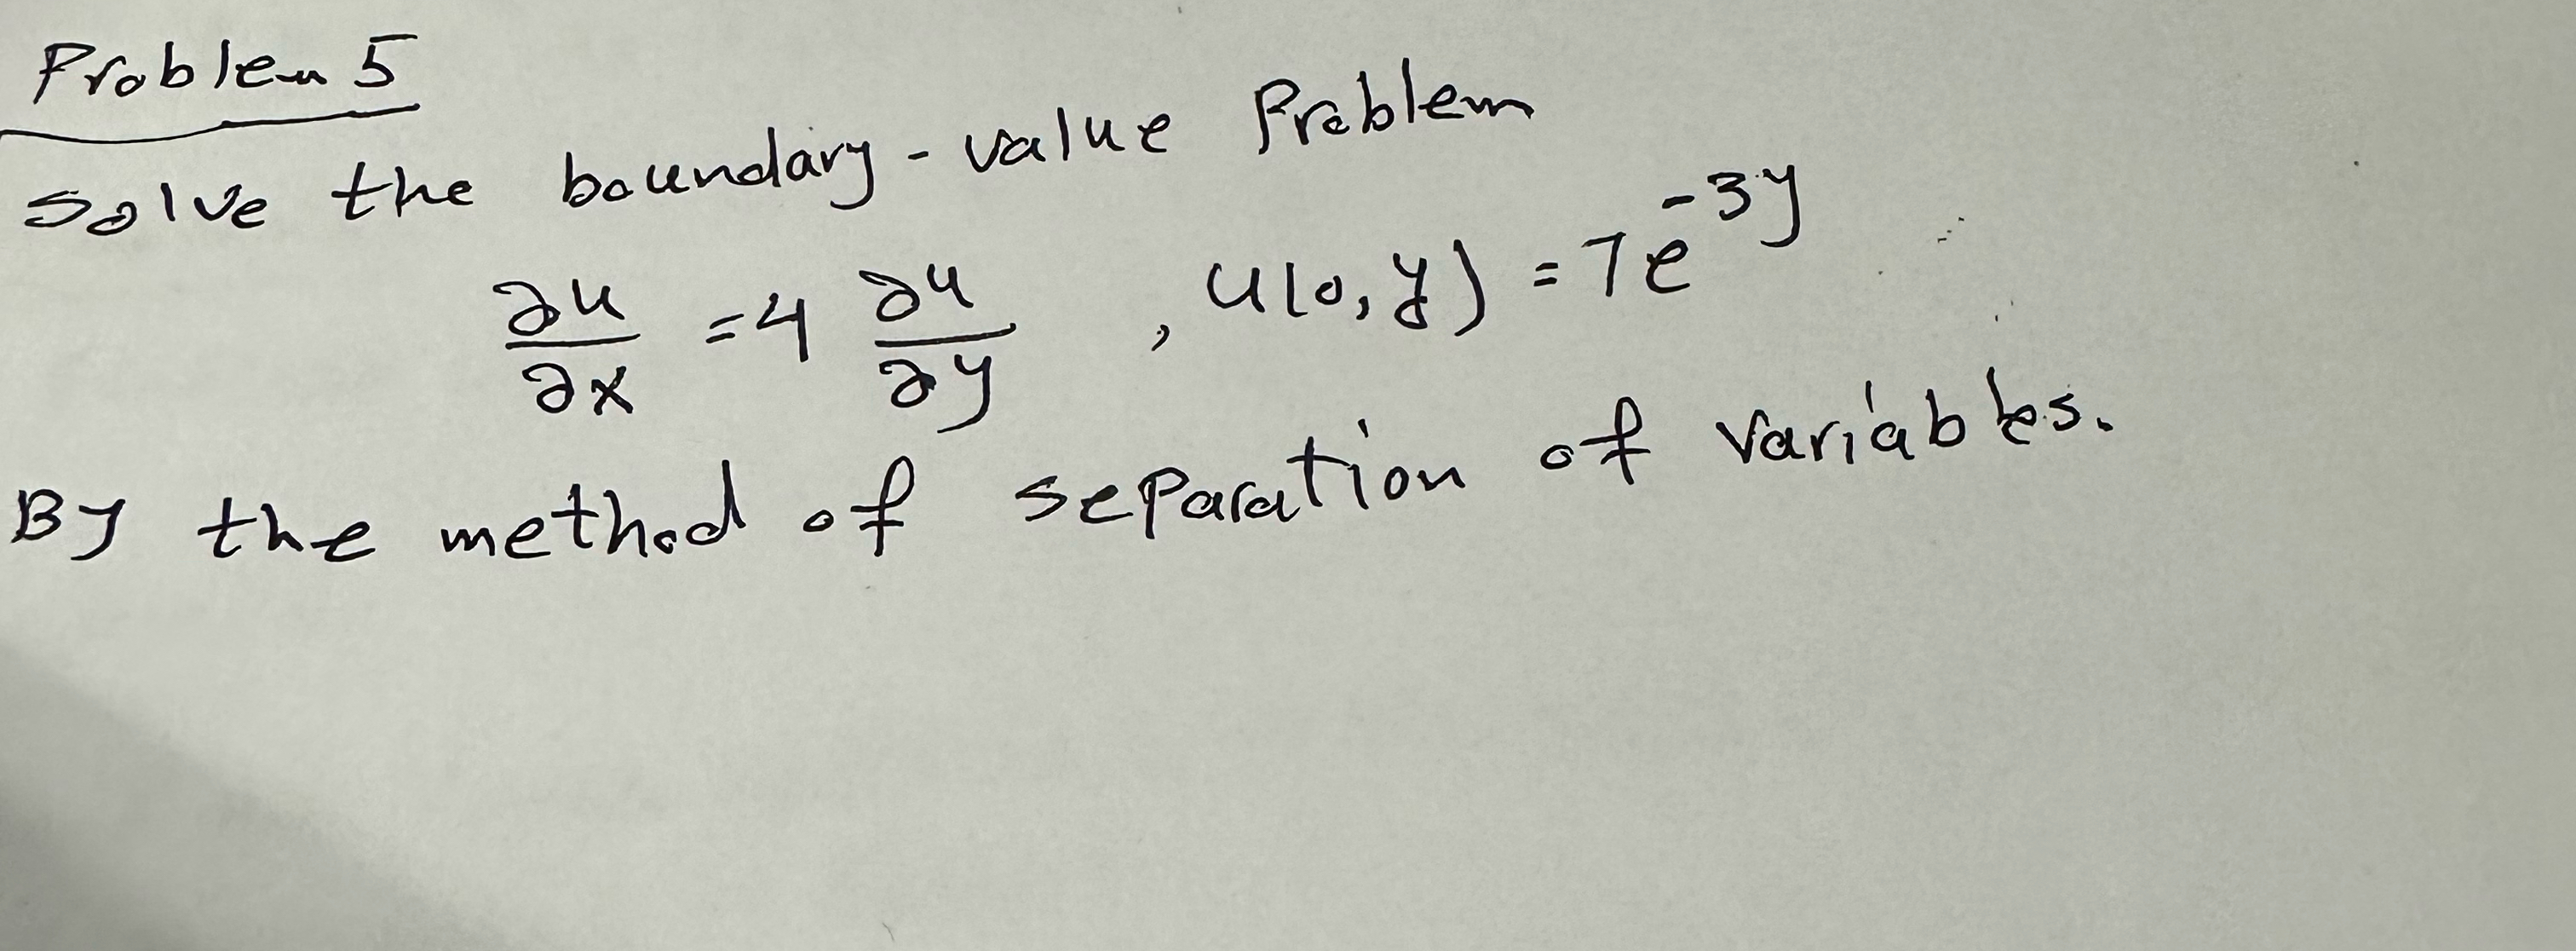 Problem 5
solve the boundary-value Problem
∂u/∂x = 4 ∂u/∂y , u(0,y) = 7e^{-3y}
By the method of separation of variables.